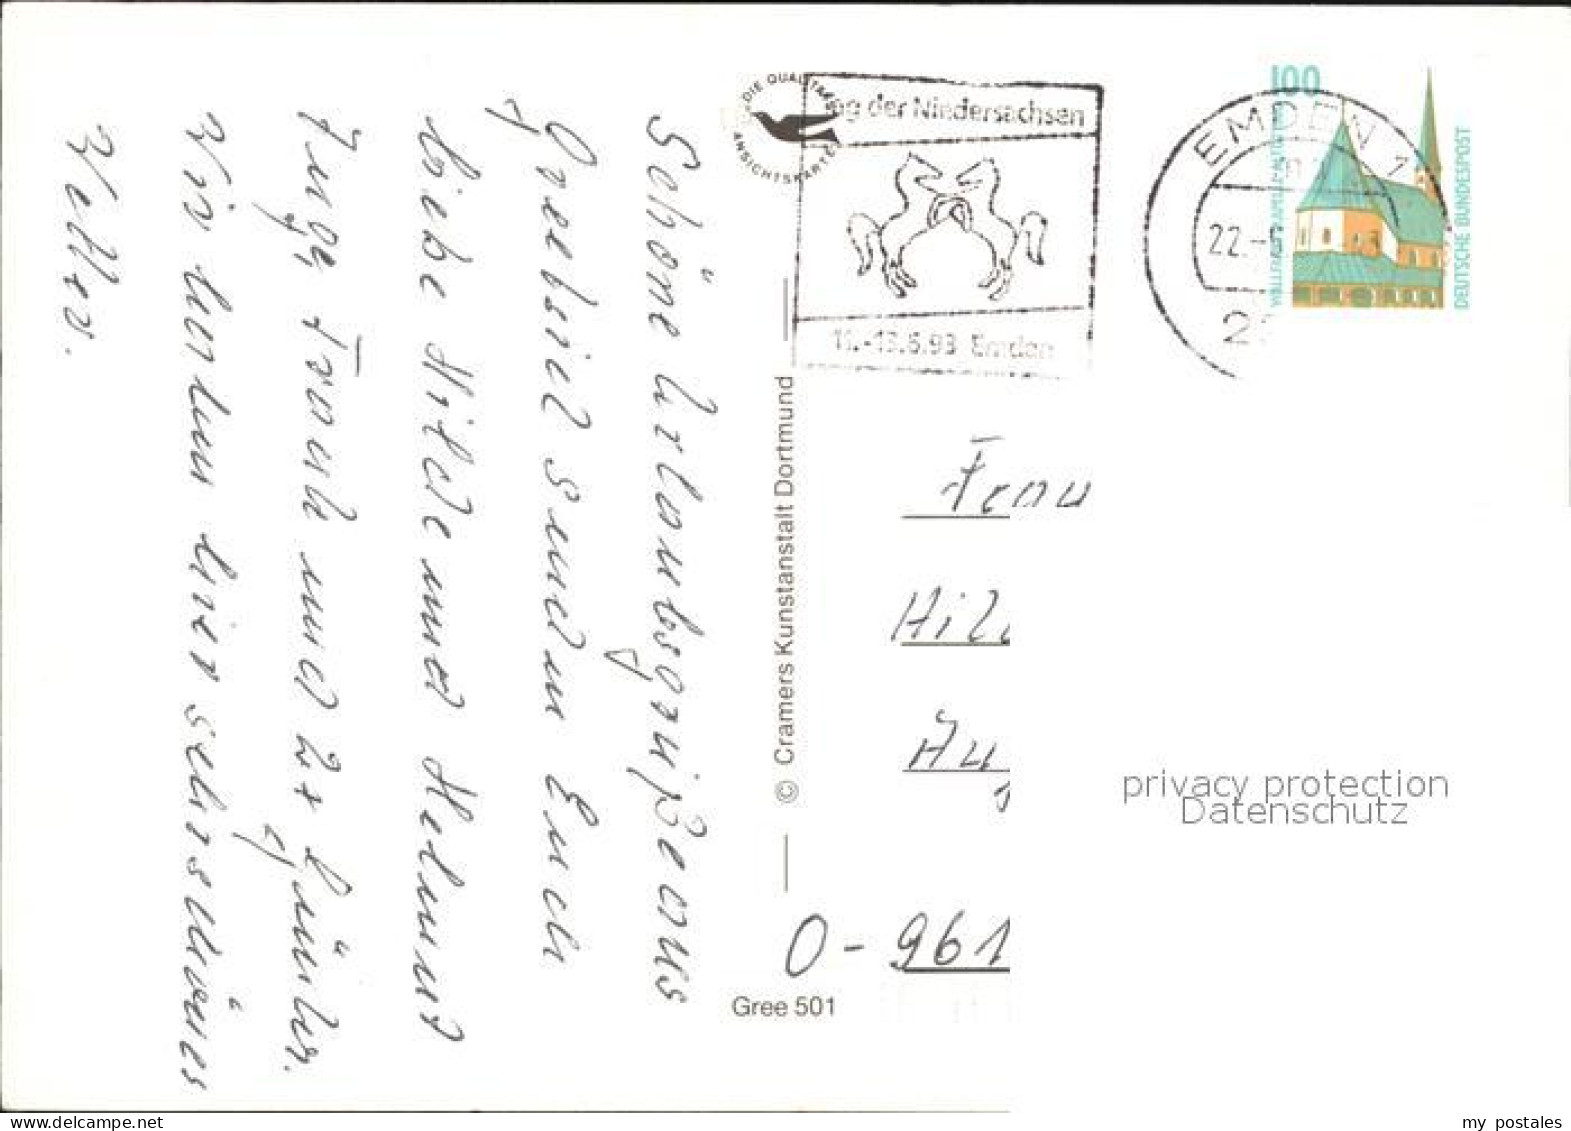 Schöne Urlaubsgrüße aus
Greetsiel senden Euch
liebe Hilde und Helmut
Inge, Frank und 2x Günter.
Wir haben hier sehr schönes
Wetter.
DIE QUALITÄTS
ANSICHTSKARTE
ag der Niedersachsen
11.-13.6.93 Emden
EMDEN 1
22.-
2
100
WALLFAHRTSKAPELLE ALTÖTTING
DEUTSCHE BUNDESPOST
© Cramers Kunstanstalt Dortmund
Gree 501
Frau
Hil
O-961
privacy protection
Datenschutz
www.delcampe.net
my_postales